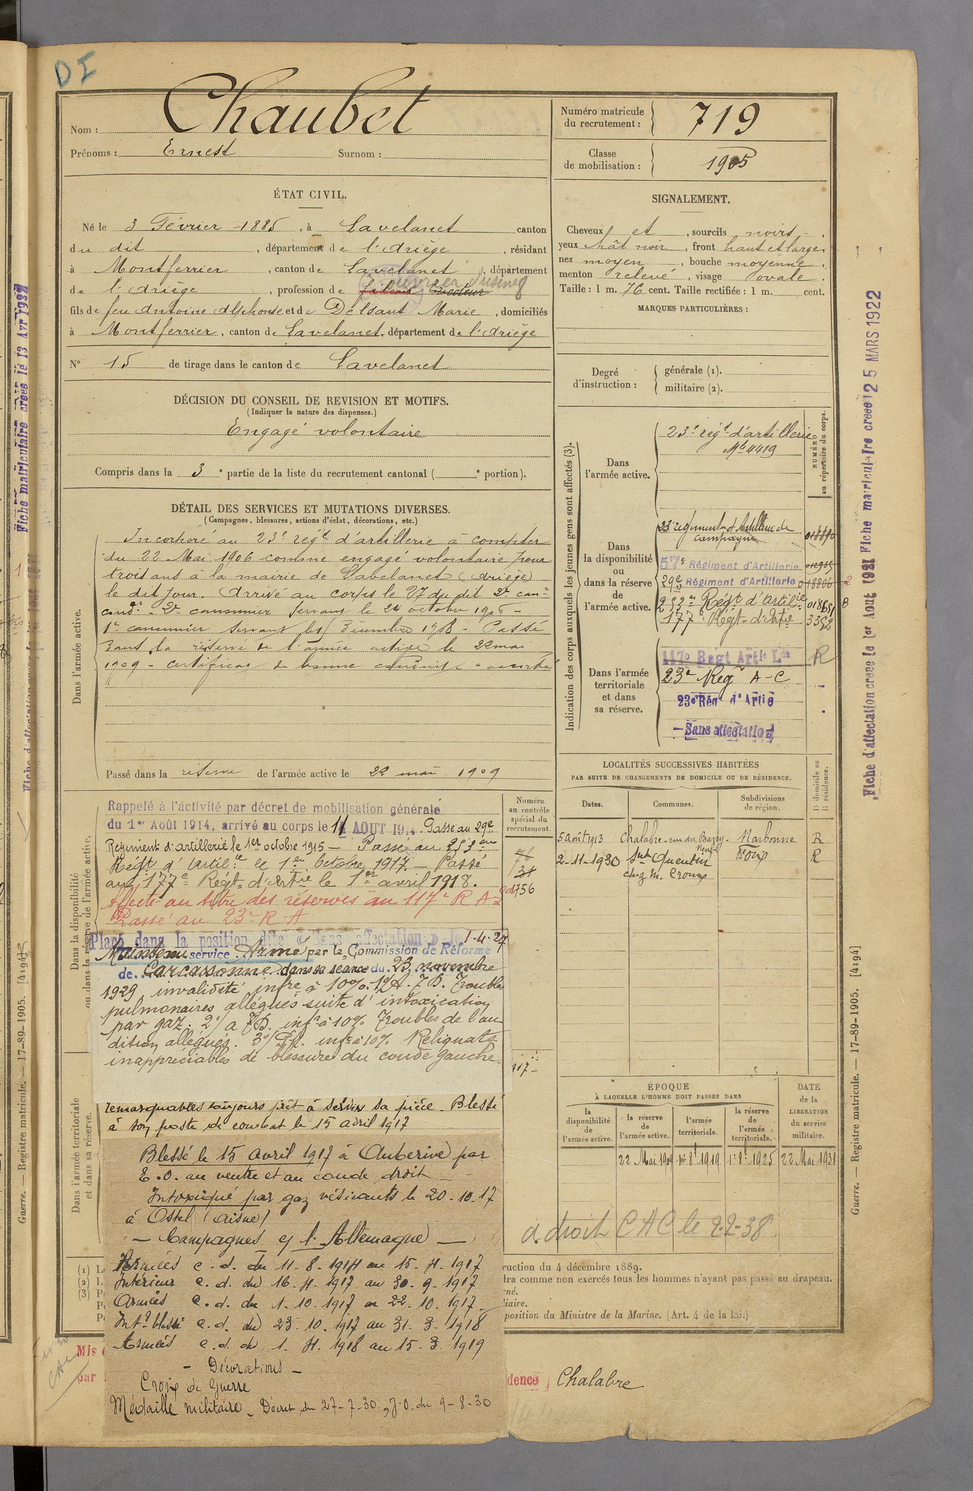 DI
Nom : Chaubet
Prénoms : Ernest Surnom :
Numéro matricule du recrutement : 719
Classe de mobilisation : 1905
ÉTAT CIVIL.
Né le 3 Février 1885, à Lavelanet canton
du dit, département de l'Ariège, résidant
à Montferrier, canton de Lavelanet, département
de l'Ariège, profession de ouvrier d'usine
fils de feu Antoine Alphonse et de Delsaut Marie, domiciliés
à Montferrier, canton de Lavelanet, département de l'Ariège
N° 15 de tirage dans le canton de Lavelanet
DÉCISION DU CONSEIL DE REVISION ET MOTIFS.
(Indiquer la nature des dispenses.)
Engagé volontaire
Compris dans la 3e partie de la liste du recrutement cantonal ( e portion).
DÉTAIL DES SERVICES ET MUTATIONS DIVERSES.
(Campagnes, blessures, actions d'éclat, décorations, etc.)
Dans l'armée active.
Incorporé au 23e régt d'artillerie à compter
du 22 Mai 1906 comme engagé volontaire pour
trois ans à la mairie de Lavelanet (Ariège)
le dit jour. Arrivé au corps le 27 du dit 2e can-
condr 2e canonnier servant le 24 octobre 1906 -
1er canonnier servant le 1 Décembre 1908 - Passé
dans la réserve de l'armée active le 22 mai
1909 - certificat de bonne conduite accordé
Passé dans la réserve de l'armée active le 22 mai 1909
SIGNALEMENT.
Cheveux et, sourcils noirs
yeux chât noir, front haut et large
nez moyen, bouche moyenne
menton relevé, visage ovale
Taille : 1 m. 76 cent. Taille rectifiée : 1 m. cent.
MARQUES PARTICULIÈRES :
Degré d'instruction : générale (1).
militaire (2).
Indication des corps auxquels les jeunes gens sont affectés (3).
NUMÉRO au répertoire du corps.
Dans l'armée active.
23e régt d'artillerie
Mle 4419
Dans la disponibilité ou dans la réserve de l'armée active.
régiment d'Artillerie de campagne
57e Régiment d'Artillerie
29e Régiment d'Artillerie
253e Régt d'Artie
177e Régt d'Artie
Dans l'armée territoriale et dans sa réserve.
117e Regt Artie Lde R
23e Reg A-C
23e Rég d'Artie
Sans affectation
LOCALITÉS SUCCESSIVES HABITÉES
PAR SUITE DE CHANGEMENTS DE DOMICILE OU DE RÉSIDENCE.
Dates. Communes. Subdivisions de région. D domicile ou R résidence.
5 août 1913 Chalabre Narbonne R
2-11-1930 St Quentin Foix R
chez M. Croux
Numéro au contrôle spécial du recrutement.
Dans la disponibilité ou dans la réserve de l'armée active.
Rappelé à l'activité par décret de mobilisation générale
du 1er Août 1914, arrivé au corps le 11 AOUT 1914. Passé au 29e
Régiment d'artillerie le 1er octobre 1915 - Passé au 253ème
Régt d'Artie le 1er Octobre 1917 - Passé
au 177e Régt d'Artie le 1er avril 1918.
Affecté au titre des réserves au 117e R A L
Passé au 23e R A
Placé dans la position dite "Sans affectation" le 1-4-27
Maintenu service Armé par la Commission de Réforme
de Carcassonne dans sa séance du 23 novembre
1929 invalidité infre à 10% 1° A.P.D. Troubles
pulmonaires allégués suite d'intoxication
par gaz. 2°/ A P.D. infr à 10% Troubles de l'au
dition allégués. 3°/ infr à 10% Reliquats
inappréciables de blessure du coude gauche.
Dans l'armée territoriale et dans sa réserve.
remarquables toujours prêt à servir sa pièce. Blessé
à son poste de combat le 15 avril 1917
Blessé le 15 avril 1917 à Auberive par
E.O. au ventre et au coude droit
Intoxiqué par gaz vésicants le 20-10-17
à Ostel (Aisne)
- Campagnes c/ l'Allemagne -
Armées c.d. du 11-8-1914 au 15-4-1917
Intérieur c.d. du 16-4-1917 au 30-9-1917
Armées c.d. du 1-10-1917 au 22-10-1917
Intr blessé c.d. du 23-10-1917 au 31-3-1918
Armées c.d. du 1-4-1918 au 15-3-1919
- Décorations -
Croix de Guerre
Médaille militaire - Décret du 27-7-30, J.O. du 9-8-30
ÉPOQUE
À LAQUELLE L'HOMME DOIT PASSER DANS
DATE de la LIBÉRATION du service militaire.
la disponibilité de l'armée active. la réserve de l'armée active. l'armée territoriale. la réserve de l'armée territoriale.
22 Mai 1909 1er 8bre 1919 1er 8bre 1925 22 Mai 1931
d. droit CAC le 22-38
ruction du 4 décembre 1889.
dra comme non exercés tous les hommes n'ayant pas passé au drapeau.
position du Ministre de la Marine. (Art. 4 de la loi.)
Mis
par
dence Chalabre
Guerre. — Registre matricule. — 17-89-1905. [4194]
Guerre. — Registre matricule. — 17-89-1905. [4194]
Fiche d'affectation creee le 1er Aout 1921 Fiche matriculaire creee 25 MARS 1922